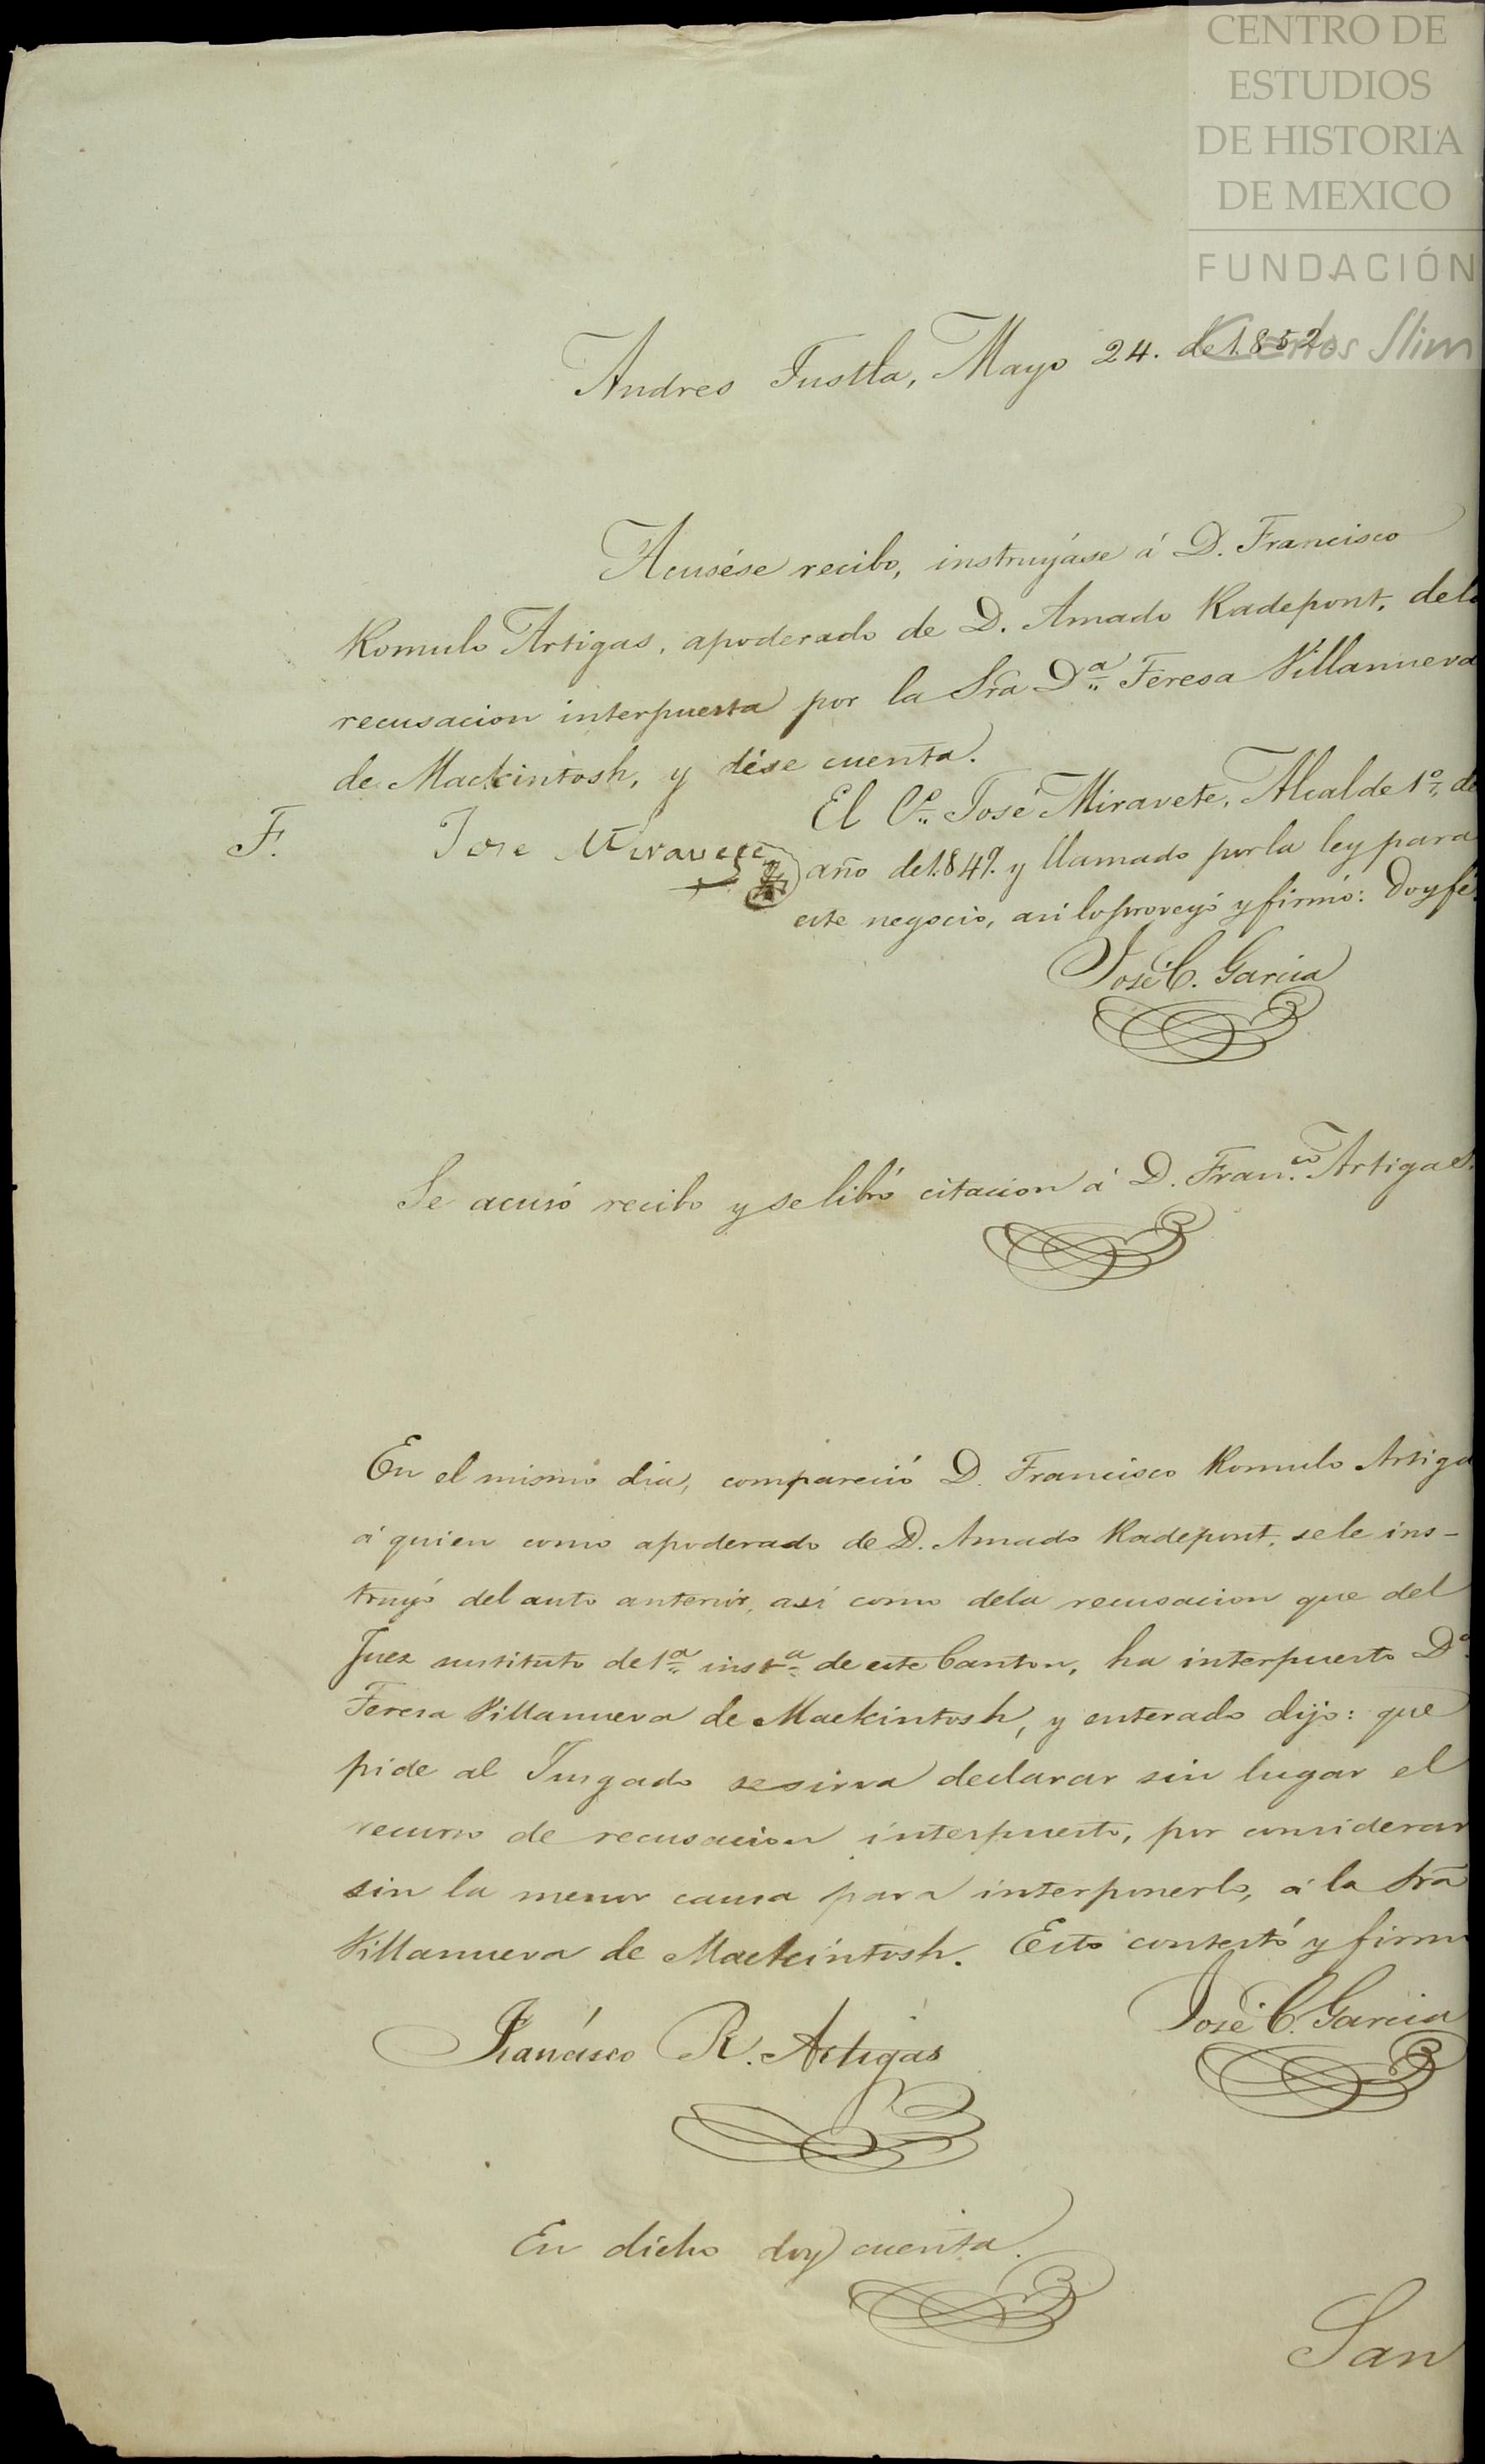 CENTRO DE
ESTUDIOS
DE HISTORIA
DE MEXICO
FUNDACIÓN
Carlos Slim
Andres Tustla, Mayo 24. de 1.852.
Acusése recibo, instruyáse á D. Francisco
Romulo Artigas, apoderado de D. Amado Radepont, de la
recusacion interpuesta por la Sra Dª Teresa Villanueva
de Mackintosh, y dése cuenta.
El C.º José Miravete, Alcalde 1º de
F. José Miravete
año de 1.849. y llamado por la ley para
este negocio, asi lo proveyó y firmó: Doy fé.
José C. Garcia
Se acusó recibo y se libró citacion á D. Fran.co Artigas.
En el mismo dia, compareció D. Francisco Romulo Artiga
á quien como apoderado de D. Amado Radepont, se le ins-
truyó del auto anterior, así como dela recusacion que del
Juez sustituto de 1ª instª de este Canton, ha interpuesto Dª
Teresa Villanueva de Mackintosh, y enterado dijo: que
pide al Jusgado se sirva declarar sin lugar el
recurso de recusacion interpuesto, por considerar
sin la menor causa para interponerlo, á la Sra
Villanueva de Mackintosh. Esto contestó y firm
José C. Garcia
Francisco R. Artigas
En dicho doy cuenta.
San